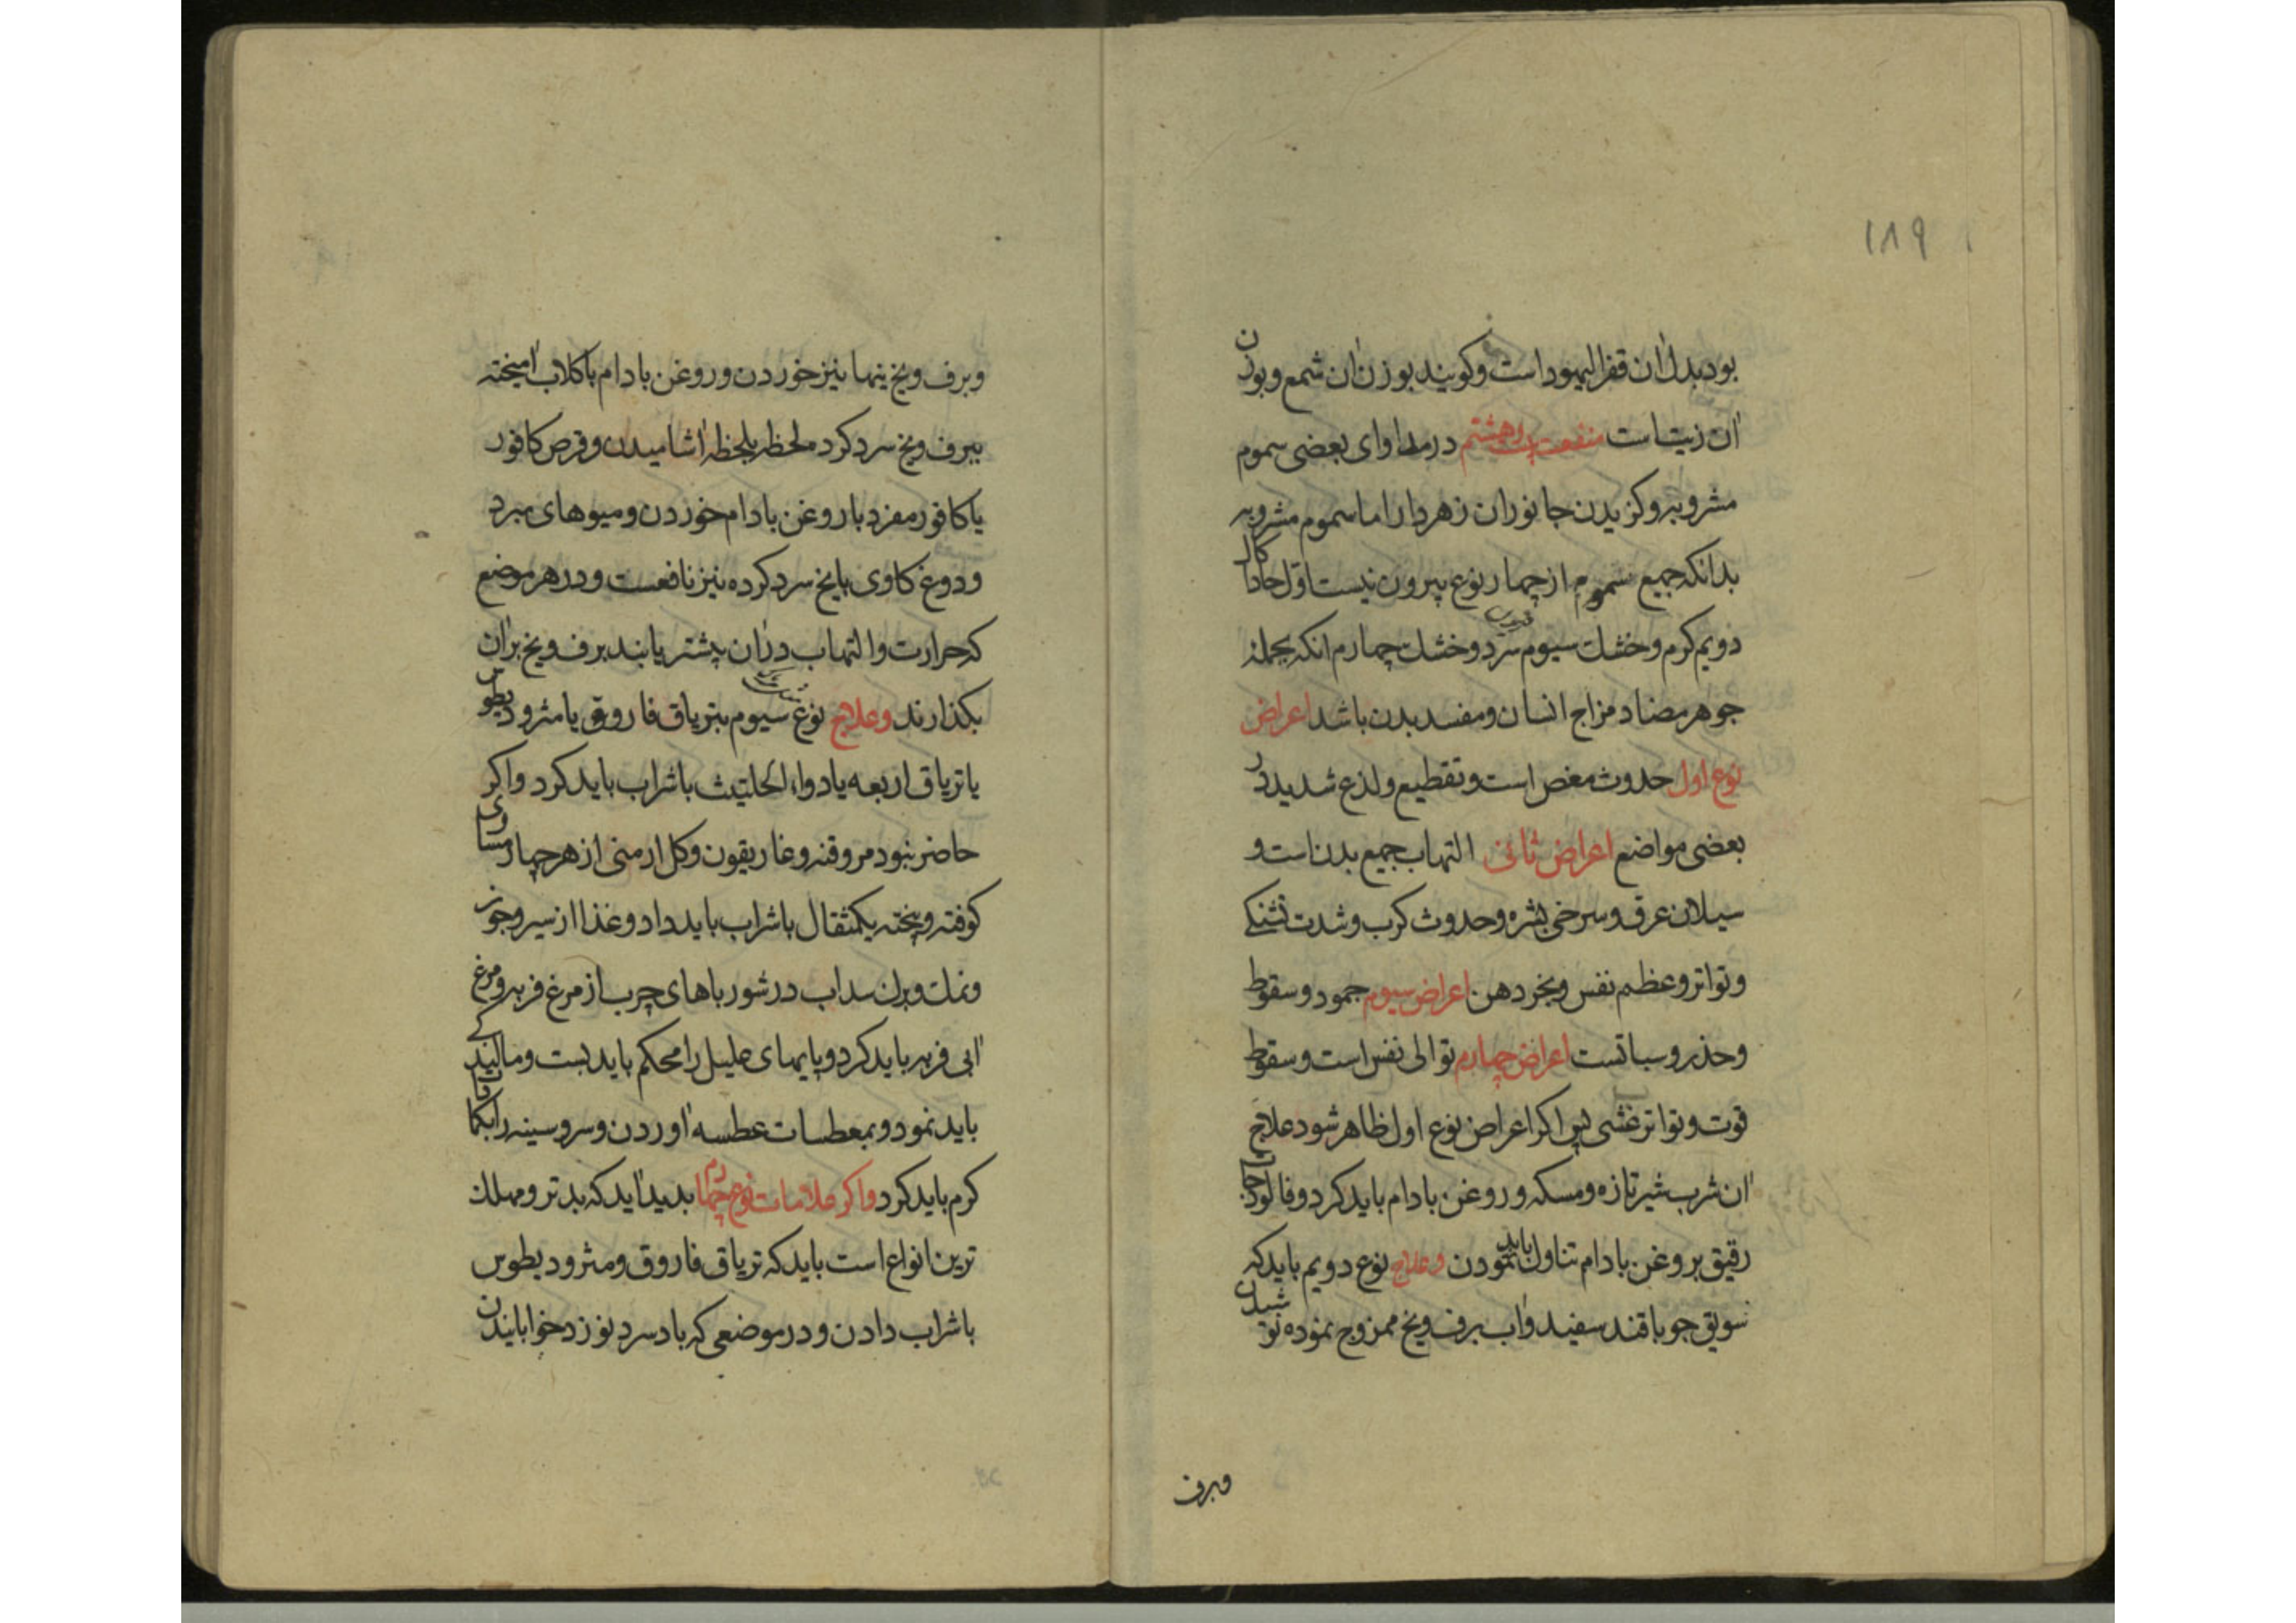 ۱۸۹
بود بدل آن قفر الیهود است وکویند بوزن آن شمع وبوزن
آن زیت است منفعت هشتم در مداوای بعضی سموم
مشروبه وکزیدن جانوران زهردار اما سموم مشروبه
بدانکه جمیع سموم از چهار نوع بیرون نیست اول حاد اکال
دویم کرم وخشک سیوم سرد وخشک چهارم انکه بجمله
جوهر مضاد مزاج انسان ومفسد بدن باشد اعراض
نوع اول حدوث مغص است وتقطیع ولذع شدید در
بعضی مواضع اعراض ثانی التهاب جمیع بدن است و
سیلان عرق وسرخی بشره وحدوث کرب وشدت تشنکی
وتواتر وعظم نفس وبخر دهن اعراض سیوم جمود وسقوط
وخدر وسباتست اعراض چهارم توالی نفس است وسقوط
قوت وتواتر غشی پس اکر اعراض نوع اول ظاهر شود علاج
آن شرب شیر تازه ومسکه وروغن بادام باید کرد وفالوذجات
رقیق بروغن بادام تناول باید نمودن وعلاج نوع دویم باید که
سویق جو باقند سفید وآب برف ویخ ممزوج نموده نوشیدن
وبرف
وبرف ویخ تنها نیز خوردن وروغن بادام باکلاب آمیخته
ببرف ویخ سرد کرده لحظه بلحظه آشامیدن وقرص کافور
یا کافور مفرد با روغن بادام خوردن ومیوهای مبرد
ودوغ کاوی بایخ سرد کرده نیز نافعست ودر هر موضع
که حرارت والتهاب در آن بیشتر یابند برف ویخ بر آن
بکذارند وعلاج نوع سیوم بتریاق فاروق یا مثرودیطوس
یا تریاق اربعه یا دواء الحلتیث باشراب باید کرد واکر
حاضر نبود مر وقنه وغاریقون وکل ارمنی از هر چهار مساوی
کوفته وبیخته یکمثقال باشراب باید داد وغذا از سیر وجوز
ونمک وبرک سداب در شورباهای چرب از مرغ فربه ومرغ
آبی فربه باید کرد وپایهای علیل را محکم باید بست ومالیدکی
باید نمود وبمعطسات عطسه آوردن وسر وسینه را بکمادات
کرم باید کرد واکر علامات نوع چهارم بدید آید که بدتر ومهلک
ترین انواع است باید که تریاق فاروق ومثرودیطوس
باشراب دادن ودر موضعی که باد سرد نوزد خوابانیدن